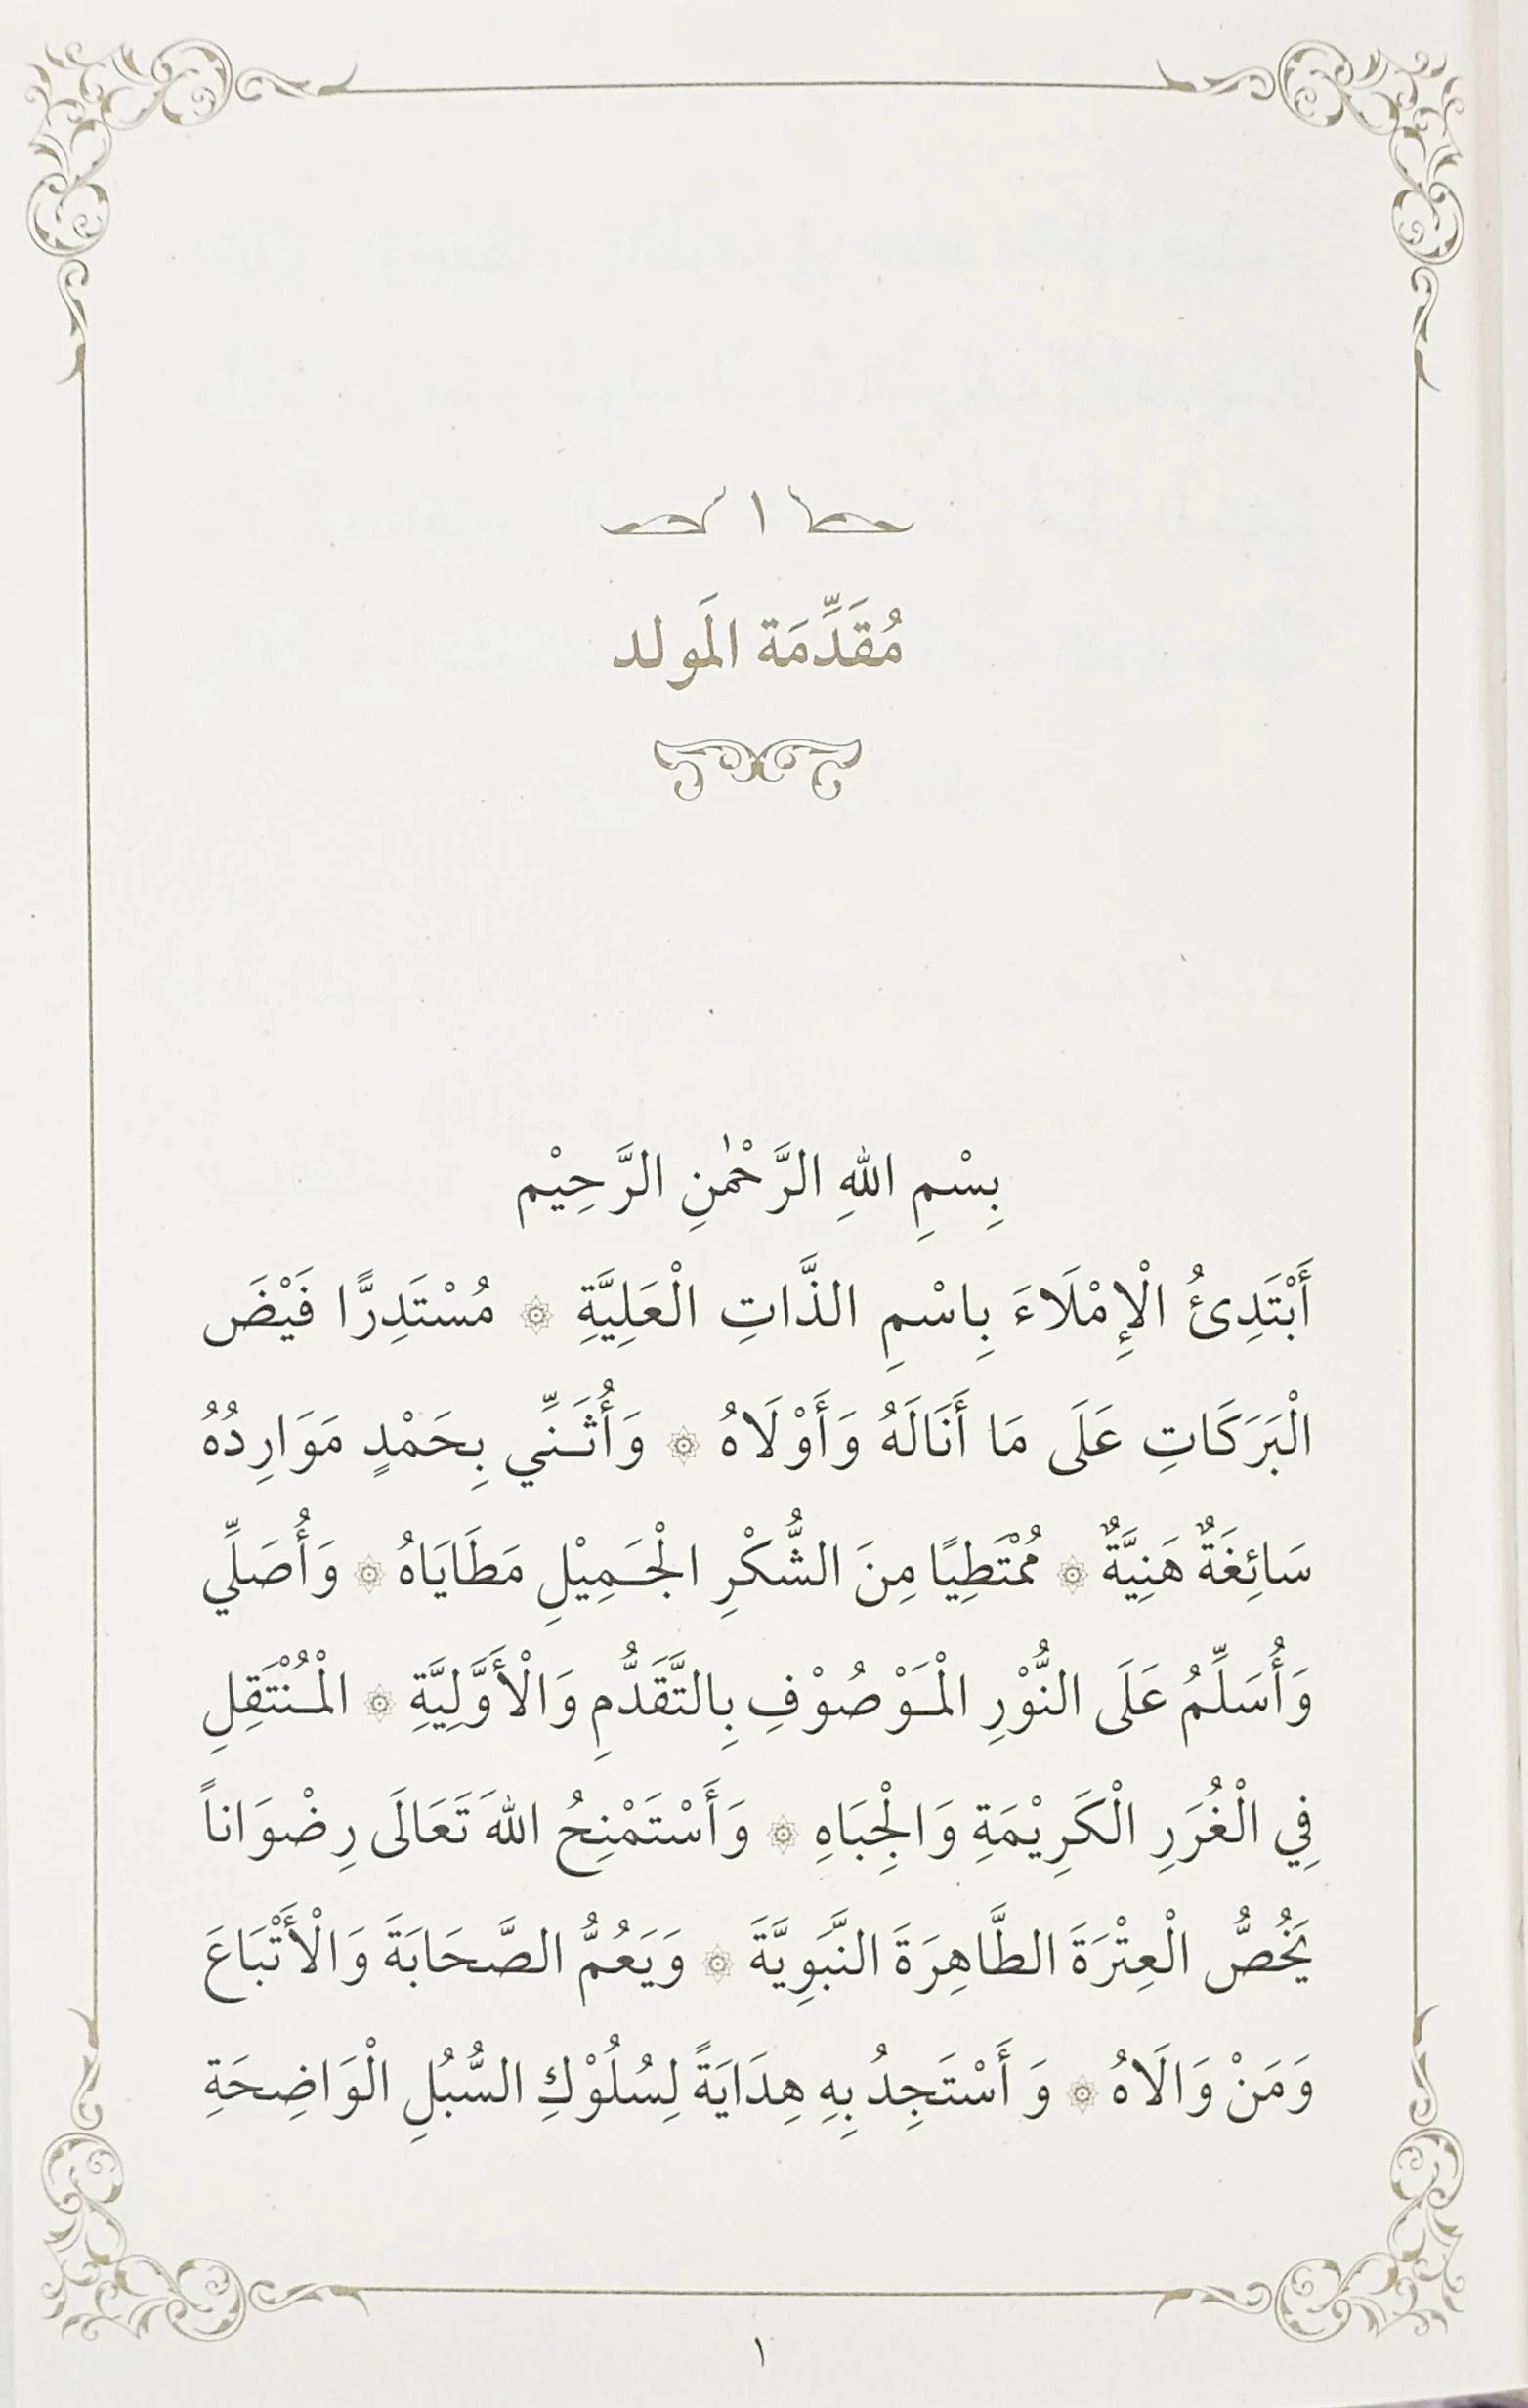 ١
مُقَدِّمَة المَولد
بِسْمِ اللهِ الرَّحْمٰنِ الرَّحِيْم
أَبْتَدِئُ الْإِمْلَاءَ بِاسْمِ الذَّاتِ الْعَلِيَّةِ ۞ مُسْتَدِرًّا فَيْضَ
الْبَرَكَاتِ عَلَى مَا أَنَالَهُ وَأَوْلَاهُ ۞ وَأُثَـنِّي بِحَمْدٍ مَوَارِدُهُ
سَائِغَةٌ هَنِيَّةٌ ۞ مُمْتَطِيًا مِنَ الشُّكْرِ الْجَـمِيْلِ مَطَايَاهُ ۞ وَأُصَلِّي
وَأُسَلِّمُ عَلَى النُّوْرِ الْمَـوْصُوْفِ بِالتَّقَدُّمِ وَالْأَوَّلِيَّةِ ۞ الْمُـنْتَقِلِ
فِي الْغُرَرِ الْكَرِيْمَةِ وَالْجِبَاهِ ۞ وَأَسْتَمْنِحُ اللهَ تَعَالَى رِضْوَاناً
يَخُصُّ الْعِتْرَةَ الطَّاهِرَةَ النَّبَوِيَّةَ ۞ وَيَعُمُّ الصَّحَابَةَ وَالْأَتْبَاعَ
وَمَنْ وَالَاهُ ۞ وَ أَسْتَجِدُ بِهِ هِدَايَةً لِسُلُوْكِ السُّبُلِ الْوَاضِحَةِ
١